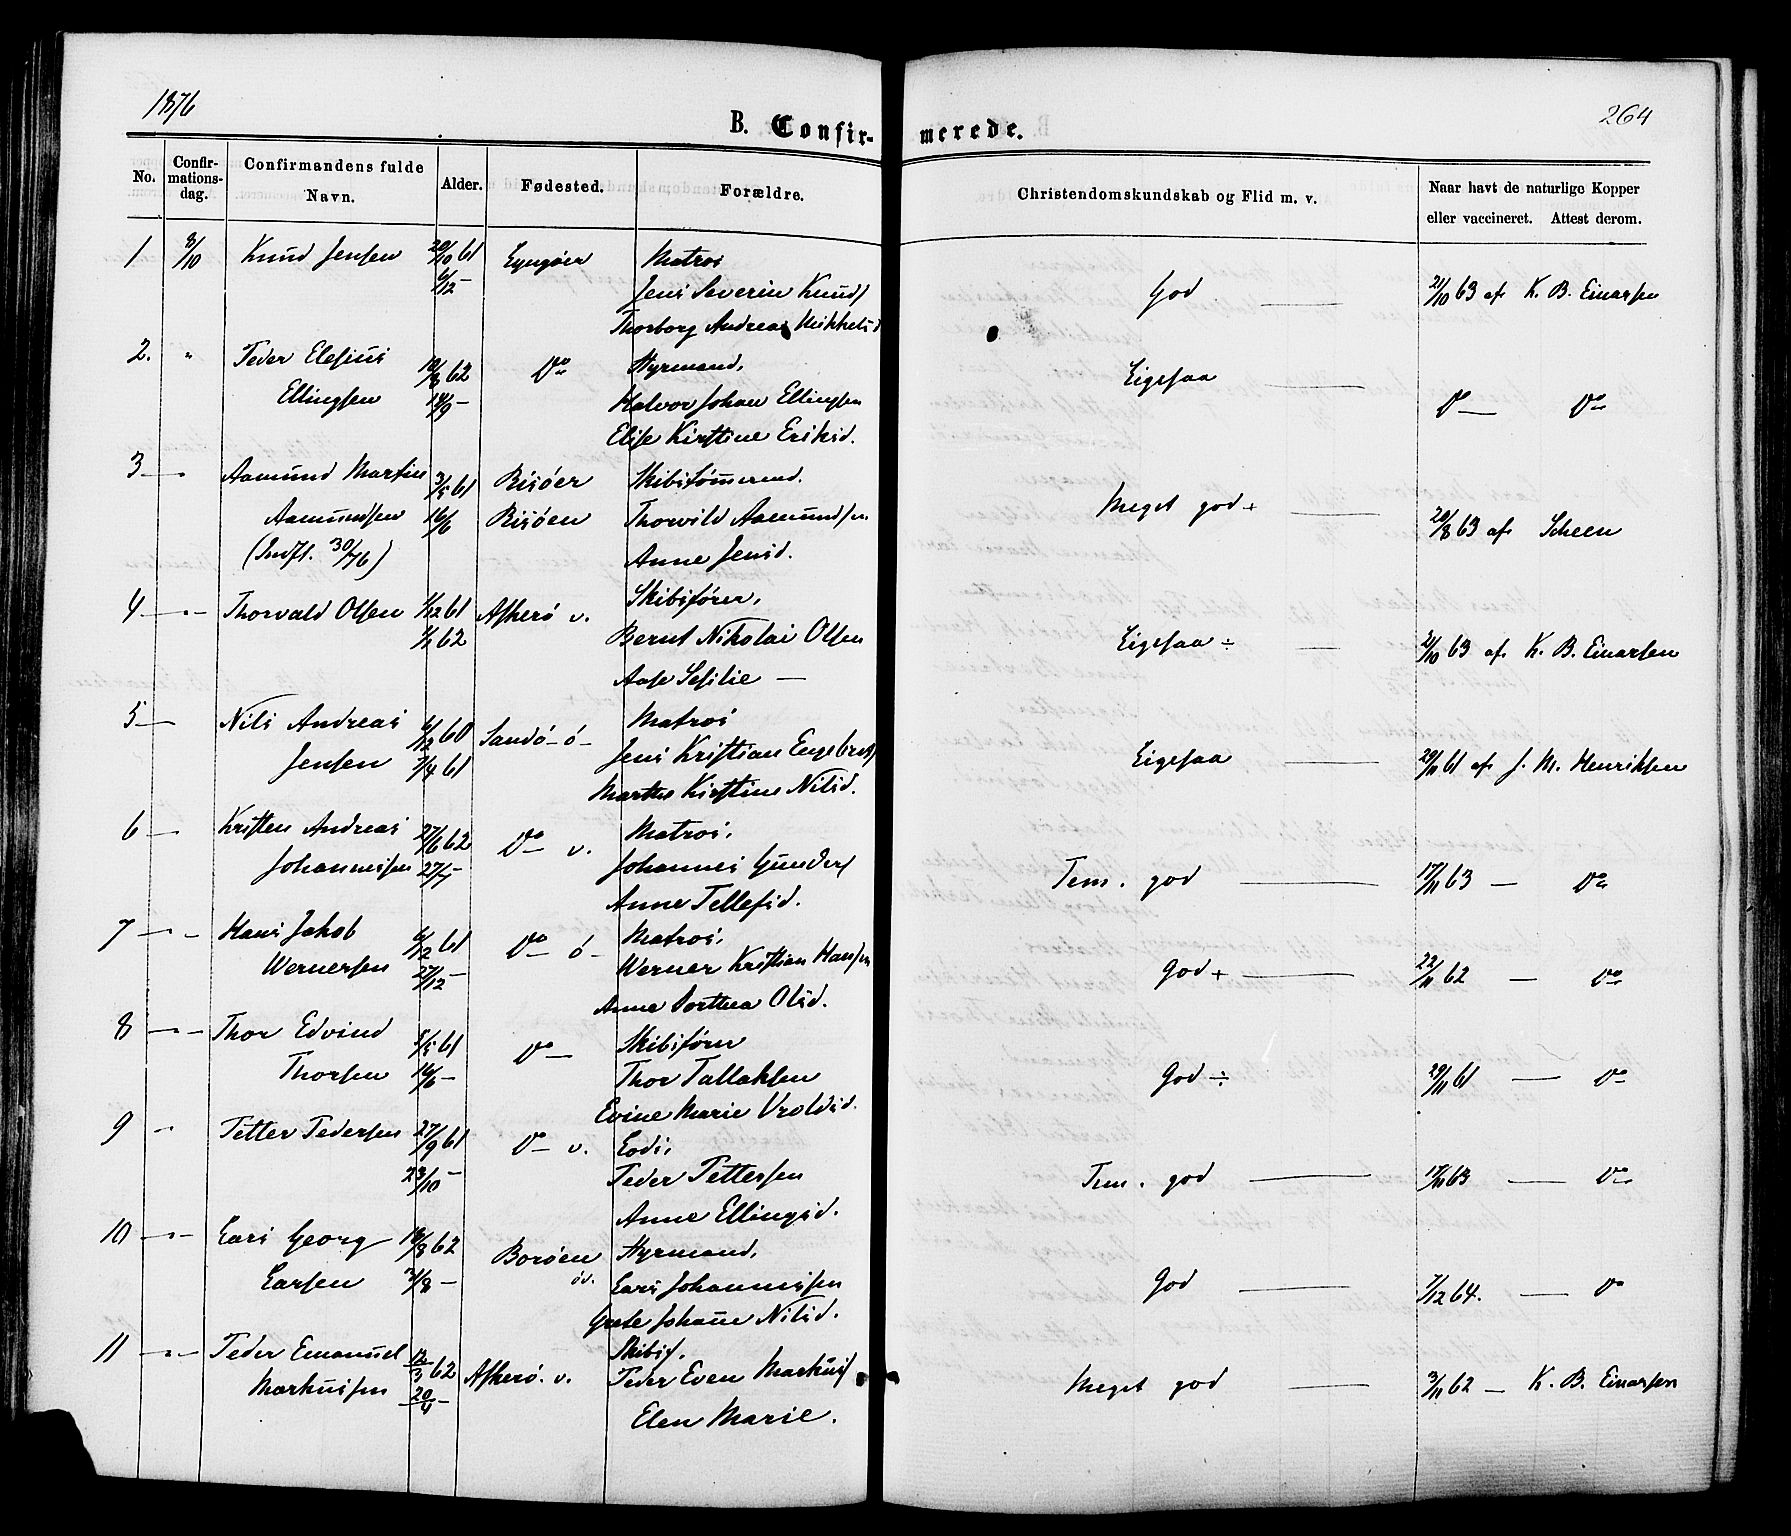 1876
264
B. Confir- merede.
No. Confir- mations- dag. Confirmandens fulde Navn. Alder. Fødested. Forældre. Christendomskundskab og Flid m. v. Naar havt de naturlige Kopper eller vaccineret. Attest derom.
1 8/10 Knud Jensen 20/10 61 Lyngøer Matros
6/12 – Jens Severin Knuds God — 21/10 63 af K. B. Einarsen
Thorborg Andrea Mikkelsd
2. " Peder Elesius 18/8 62 Do Styrmand,
Ellingsen 14/9 – Halvor Johan Ellingsen Ligesaa — Do — Do
Elise Kirstine Eriksd.
3 – " Aamund Martin 3/5 61 Risøer Skibstømmermd.
Aamundsen 16/6 Risøen Thorvild Aamundsen Meget god + — 20/8 63 af Scheen
(Indfl. 30/ 76) Anne Jensd.
4 – " – Thorvald Olsen 1/12 61 Askerø v. Skibsfører,
1/1 62 Bernt Nikolai Olsen Ligesaa ÷ — 21/10 63 af K. B. Einarsen
Aase Sesilie —
5 – " Nils Andreas 6/12 60 Sandø – ø – Matros
Jensen 7/4 61 Jens Kristian Engebrets Ligesaa — 29/11 61 af J. M. Henriksen
Marthe Kirstine Nilsd.
6 – " Kristen Andreas 27/6 62 Do v. Matros,
Johannessen 27/7 – Johannes Gunders Tem. god — 17/11 63 — Do
Anne Tellefsd.
7 – " – Hans Jakob 6/12 61 Do ø – Matros,
Wernersen 27/12 – Werner Kristian Hansen God + — 22/11 62 — Do
Anne Dorthea Olsd.
8 – " – Thor Edvind 5/5 61 Do — Skibsfører
Thorsen 16/6 – Thor Tallaksen God ÷ — 29/11 61 — Do
Evine Marie Vroldsd.
9 – " Petter Pedersen 27/9 61 Do v. Lods,
23/10 – Peder Pettersen Tem. god — 17/11 63 — Do
Anne Ellingsd.
10 – " – Lars Georg 18/3 62 Borøen Styrmand,
Larsen 3/8 – øv. Lars Johannessen God — 7/12 64. — Do
Grete Johanne Nilsd.
11 – " – Peder Emanuel 12/3 62 Askerø. v. Skibsf.
Markussen 20/4 – Peder Even Markuss Meget god — 3/11 62 — K. B. Einarsen
Elen Marie.